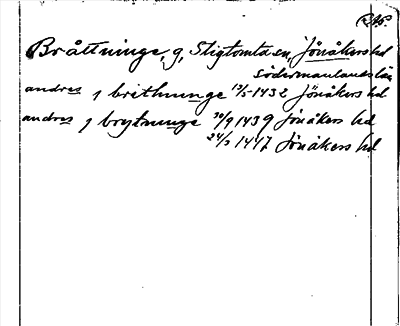 Bråttninge, g, Stigtomta sn, Jönåkers hd
Södermanlands län
andres j brithnunge 13/5-1432 Jönåkers hd
andres j brytnunge 30/9 1439 Jönåkers hd
24/3 1447 Jönåkers hd